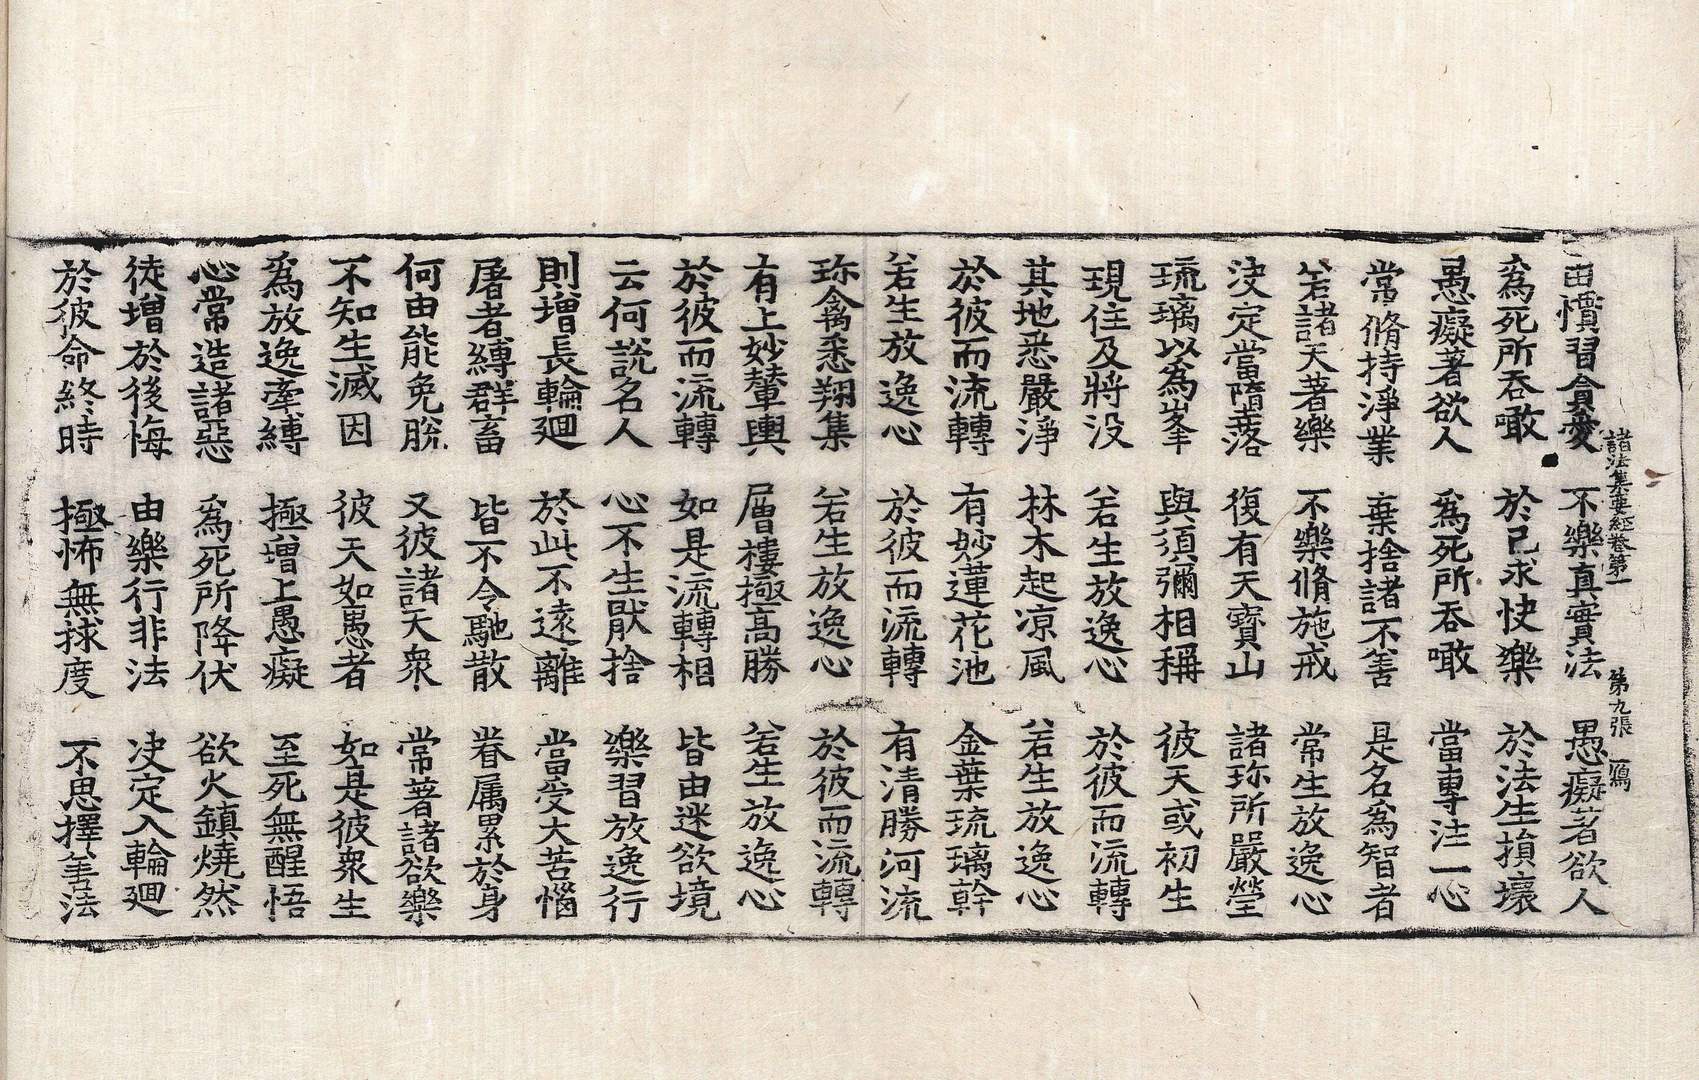 諸法集要経卷第一　第九張　鴈
由慣習貪愛　不樂真實法　愚癡著欲人
為死所吞噉　於己求快樂　於法生損壞
愚癡著欲人　為死所吞噉　當專法一心
常脩持淨業　棄捨諸不善　是名為智者
若諸天著樂　不樂脩施戒　常生放逸心
決定當墮落　復有天寶山　諸珎所嚴瑩
琉璃以為峯　與須彌相稱　彼天或初生
現住及將没　若生放逸心　於彼而流轉
其地悉嚴淨　林木起凉風　若生放逸心
於彼而流轉　有妙蓮花池　金葉琉璃幹
若生放逸心　於彼而流轉　有清勝河流
珎禽悉翔集　若生放逸心　於彼而流轉
有上妙輦輿　層樓極高勝　若生放逸心
於彼而流轉　如是流轉相　皆由迷欲境
云何説名人　心不生猒捨　樂習放逸行
則增長輪廻　於此不遠離　當受大苦惱
屠者縛群畜　皆不令馳散　眷属累於身
何由能免脫　又彼諸天衆　常著諸欲樂
不知生滅因　彼天如愚者　如是彼衆生
為放逸牽縛　極增上愚癡　至死無醒悟
心常造諸惡　為死所降伏　欲火鎮燒然
徒增於後悔　由樂行非法　决定入輪廻
於彼命終時　極怖無捄度　不思擇善法